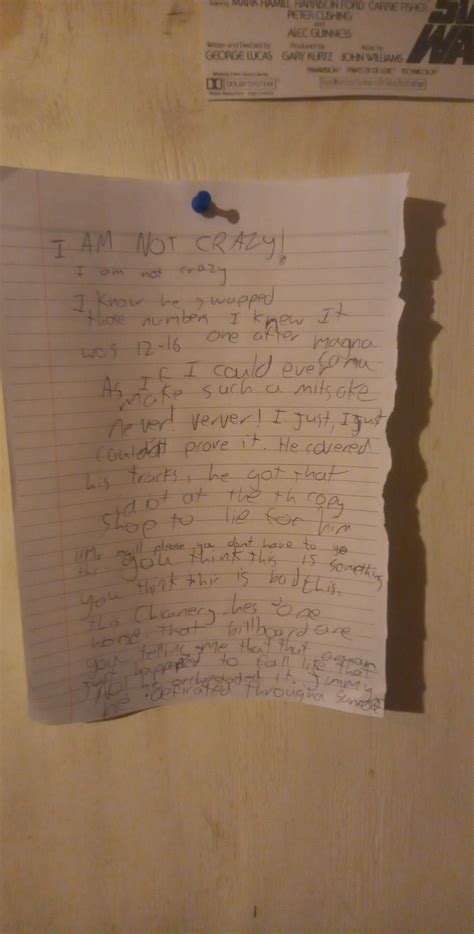 MARK HAMILL HARRISON FORD CARRIE FISHER
PETER CUSHING
and
ALEC GUINNESS
Written and Directed by Produced by Music by
GEORGE LUCAS GARY KURTZ JOHN WILLIAMS
PANAVISION PRINTS BY DE LUXE TECHNICOLOR
DOLBY SYSTEM
WA
I AM NOT CRAZY!
I am not crazy
I Know he swapped
those numbers I knew It
was 12-16 one after magna
carta
As If I could ever
make such a mitsake
never! verver! I just, I just
couldnt prove it. He covered
his tracks, he got that
idot at the th copy
shop to lie for him
please you dont have to go
you think this is something
you think this is bad this,
this Chanery hes done
horse, that billboard are
you telling me that that a man
just happened to fall like that
No! he orchestrated it. Jimmy
he through a sunroof